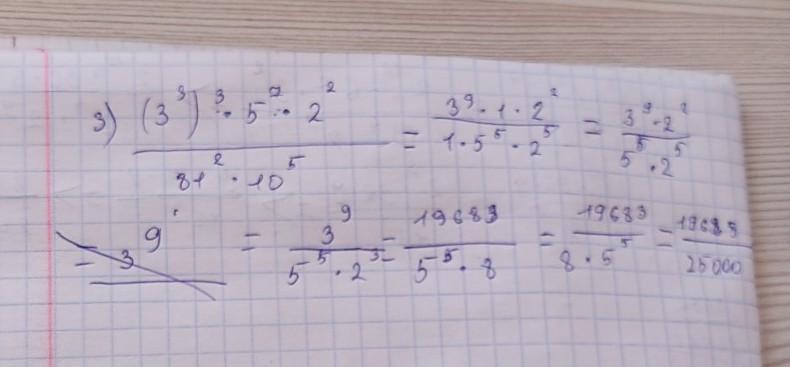 3) ((3³)³ · 5⁷ · 2²) / (81² · 10⁵) = (3⁹ · 1 · 2²) / (1 · 5⁵ · 2⁵) = (3⁹ · 2²) / (5⁵ · 2⁵)
= 3⁹ = 3⁹ / (5⁵ · 2³) = 19683 / (5⁵ · 8) = 19683 / (8 · 5⁵) = 19683 / 25000